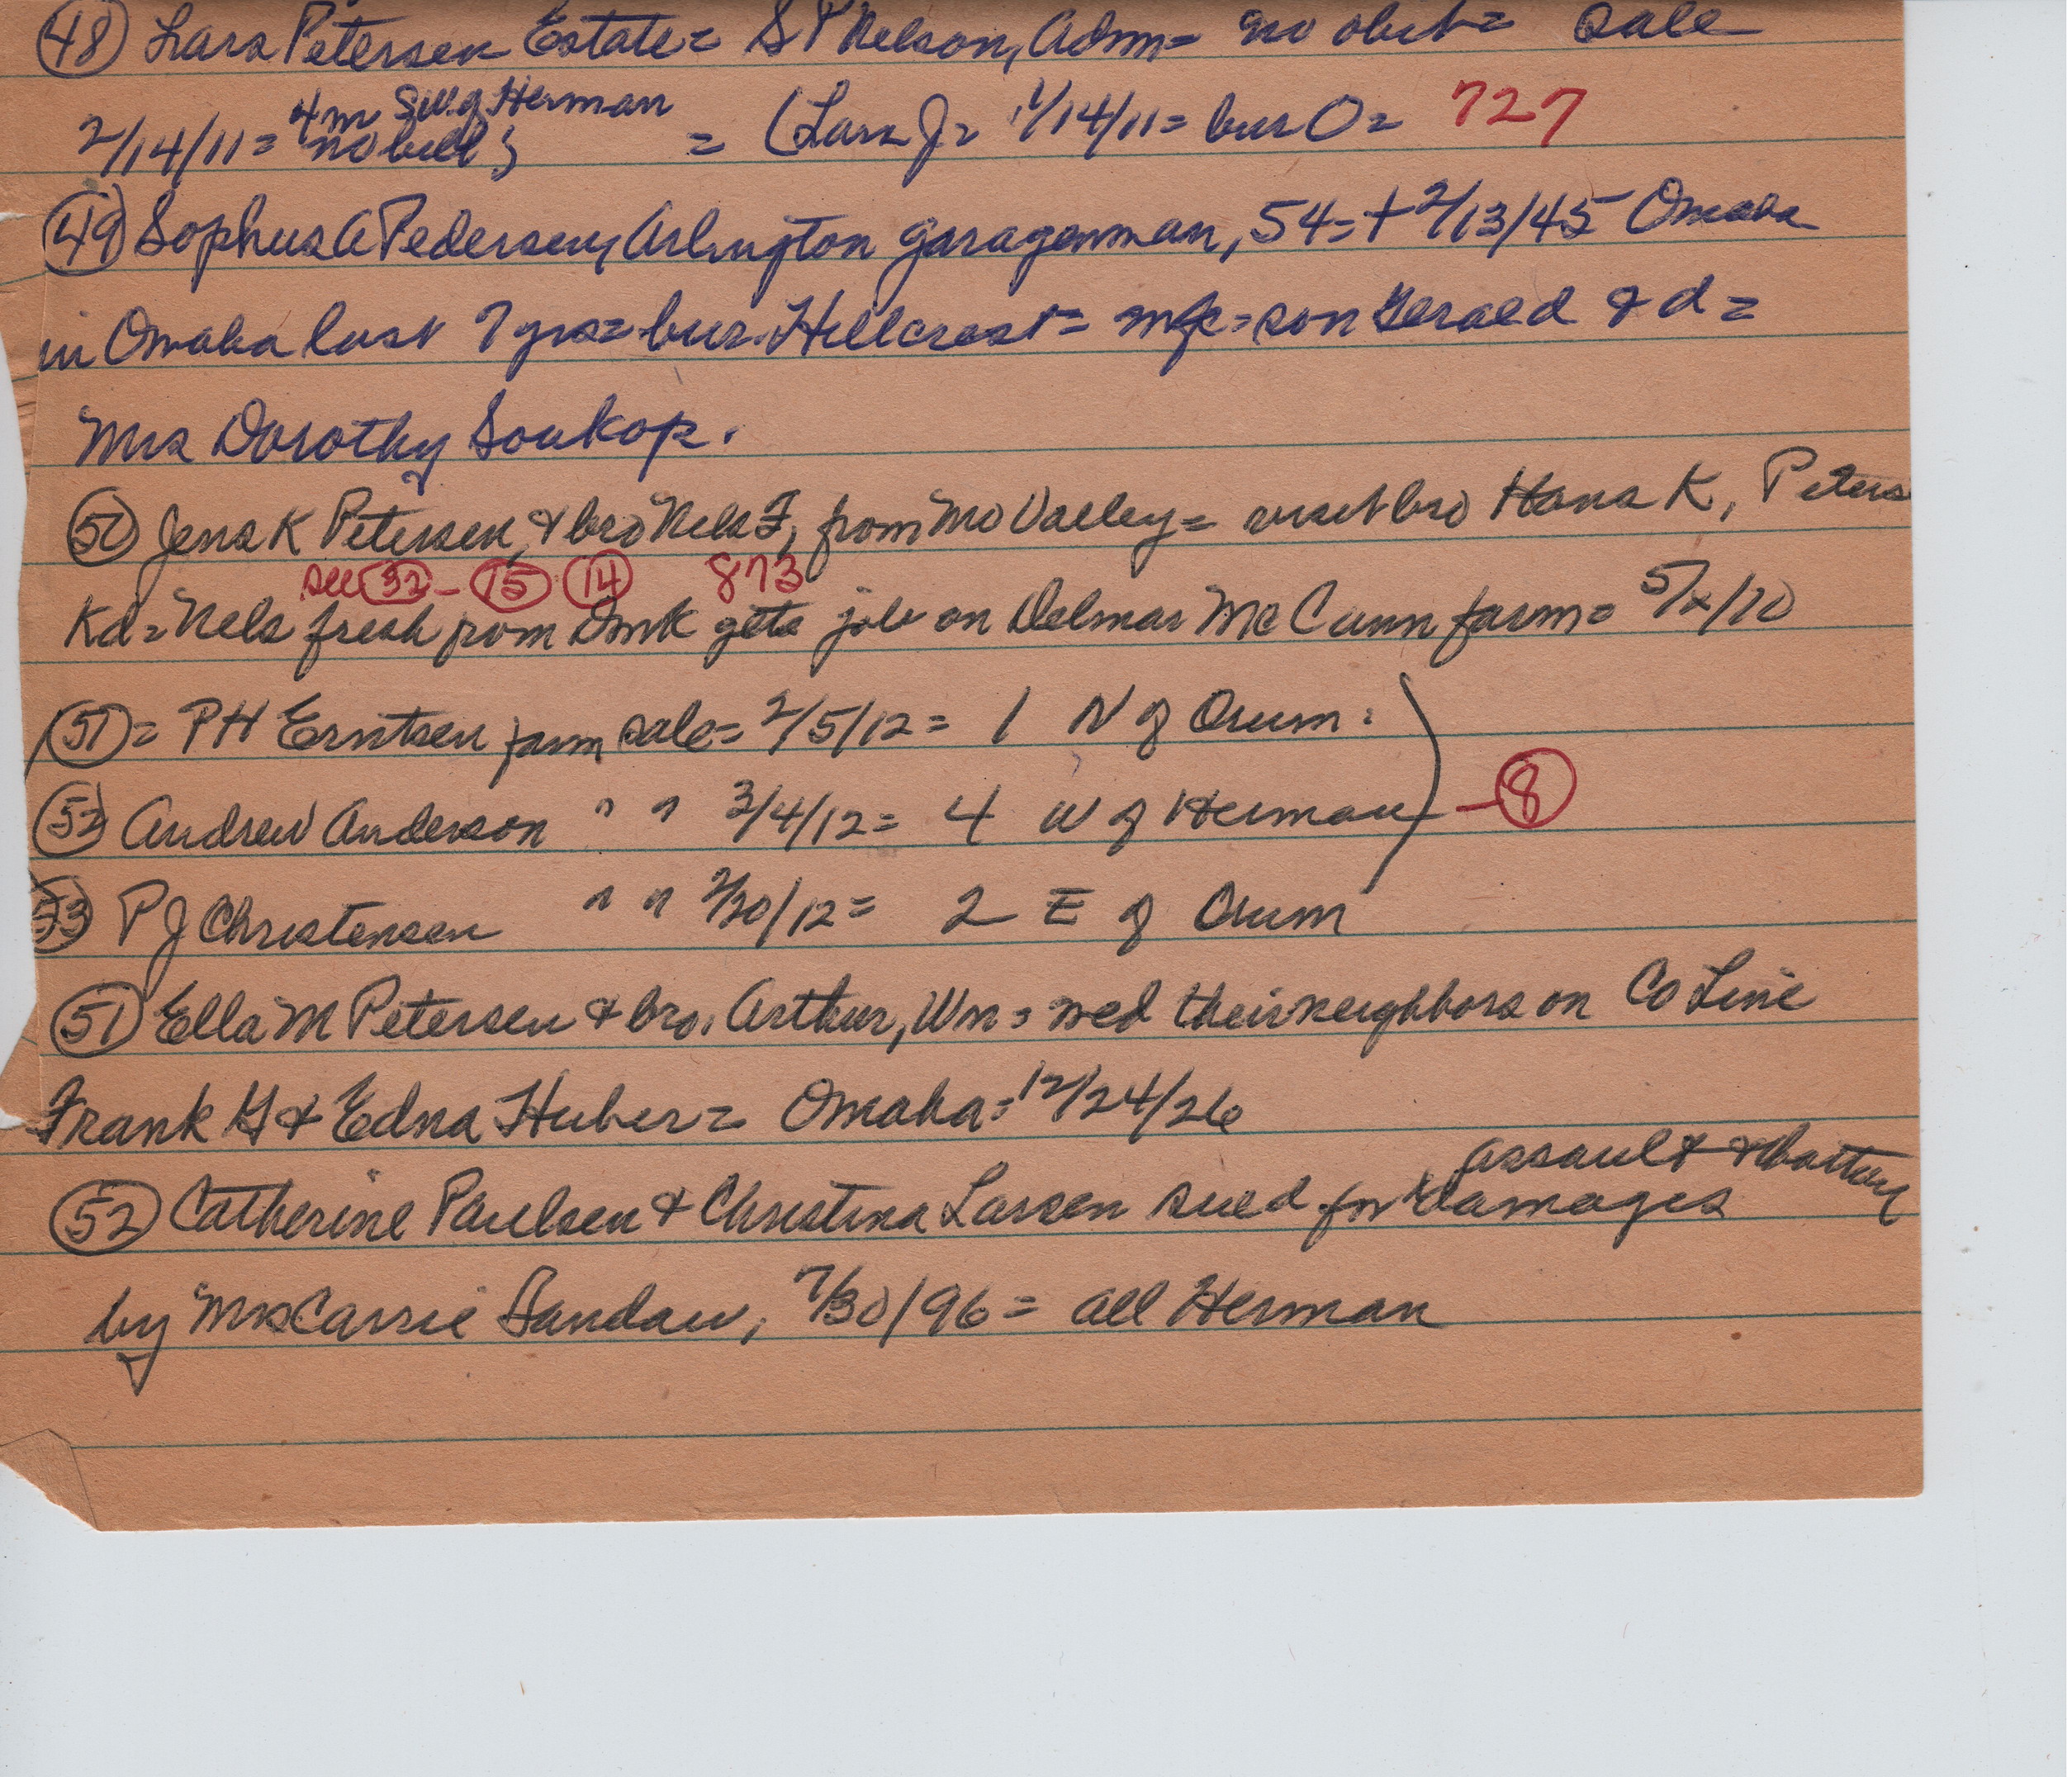 (48) Lars Petersen Estate = S P Nelson, Adm = no obit = sale
4 m SW of Herman
2/14/11 = no bill ; = (Lars J = 1/14/11 = bur O = 727
(49) Sophus A Pedersen, Arlington garageman, 54 = + 2/13/45 Omaha
in Omaha last 7 yrs = bur. Hillcrest = = son Gerald & d =
Mrs Dorothy Soukop.
(50) Jens K Petersen, & bro Nels F, from Mo Valley = visit bro Hans K, Peters
see (32) - (15) (14) 873
Kd = Nels fresh from Dmk gets job on Delmar McCann farm = 5/x/10
(51) = P H Erntsen farm sale = 2/5/12 = 1 N of Orum =
(52) Andrew Anderson " " 3/4/12 = 4 W of Herman ) - (8)
(53) P J Christensen " " 2/20/12 = 2 E of Orum
(51) Ella M Petersen & bro. Arthur, Wm = wed their neighbors on Co Line
Frank H & Edna Huber = Omaha = 12/24/26
assault & battery
(52) Catherine Paulsen & Christina Larsen sued for & damages
by Mrs Carrie Sandau, 7/30/96 = all Herman